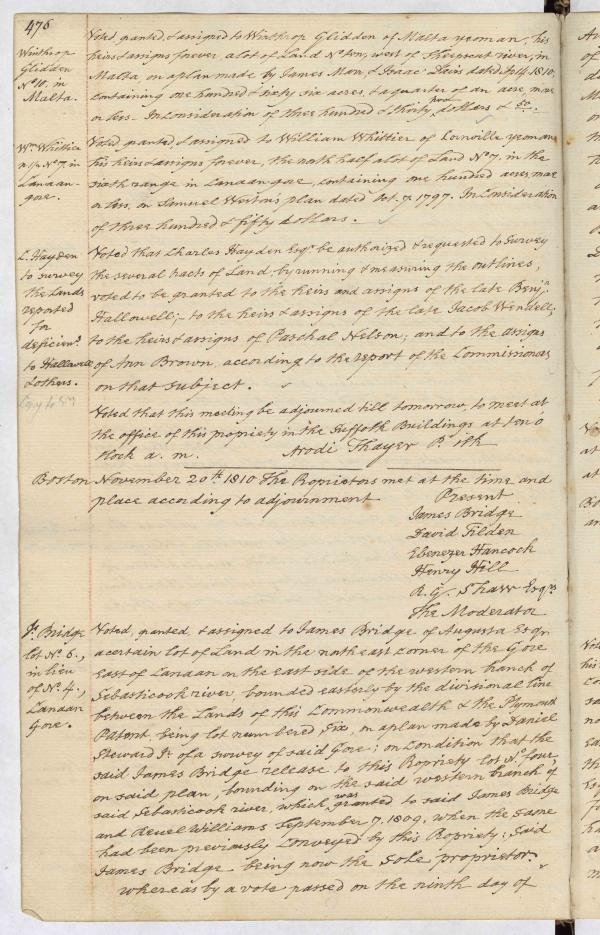 476
Winthrop
Glidden
No 10. in
Malta.
Voted, granted, & assigned to Winthrop Glidden of Malta yeoman, his
heirs & assigns forever, a lot of Land No ten, west of Sheepscut river, in
Malta, on a plan made by James Marr, & Isaac Davis dated July 4. 1810,
containing one hundred & sixty six acres, & a quarter of an acre, more
or less. In Consideration of three hundred & thirty four dollars & 50.
Wm Whittier
n. 1/2 No 7. in
Canaan-
gore.
Voted, granted, & assigned to William Whittier of Cornville yeoman
his heirs & assigns forever, the north half a lot of Land No 7. in the
sixth range in Canaan gore, containing one hundred acres, more
or less, on Samuel Weston's plan dated Oct. 7. 1797. In Consideration
of three hundred & fifty dollars.
C. Hayden
to survey
the Lands
reported
for
deficiens
to Hallowell
& others.
Voted that Charles Hayden Esqr. be authorized & requested to survey
the several tracts of Land, by running & measuring the outlines,
voted to be granted to the heirs and assigns of the late Benjn
Hallowell; to the heirs & assigns of the late Jacob Wendell;
to the heirs & assigns of Paschal Nelson; and to the assigns
of Ann Brown, according to the report of the Commissioners
on that subject.
Voted that this meeting be adjourned till tomorrow, to meet at
the office of this propriety in the Suffolk Buildings at ten o'
clock a. m. Arodi Thayer P. Clk
Boston November 20th 1810 The Proprietors met at the time and
place according to adjournment
Present
James Bridge
David Tilden
Ebenezer Hancock
Henry Hill
R. G. Shaw Esqrs
The Moderator
Js. Bridge
lot No. 6.,
in lieu
of No. 4.,
Canaan
Gore.
Voted, granted, & assigned to James Bridge of Augusta Esqr
a certain lot of Land in the northeast corner of the Gore
East of Canaan on the east side of the western branch of
Sebasticook river, bounded easterly by the divisional line
between the Lands of this Commonwealth & the Plymouth
Patent, being lot numbered Six, on a plan made by Daniel
Steward Jr. of a survey of said Gore; on condition that the
said James Bridge release to this Propriety lot No. four,
on said plan, bounding on the said western branch of
said Sebasticook river, which was granted to said James Bridge
and Reuel Williams September 7, 1809, when the same
had been previously conveyed by this Propriety; said
James Bridge being now the sole proprietor.
Whereas by a vote passed on the ninth day of